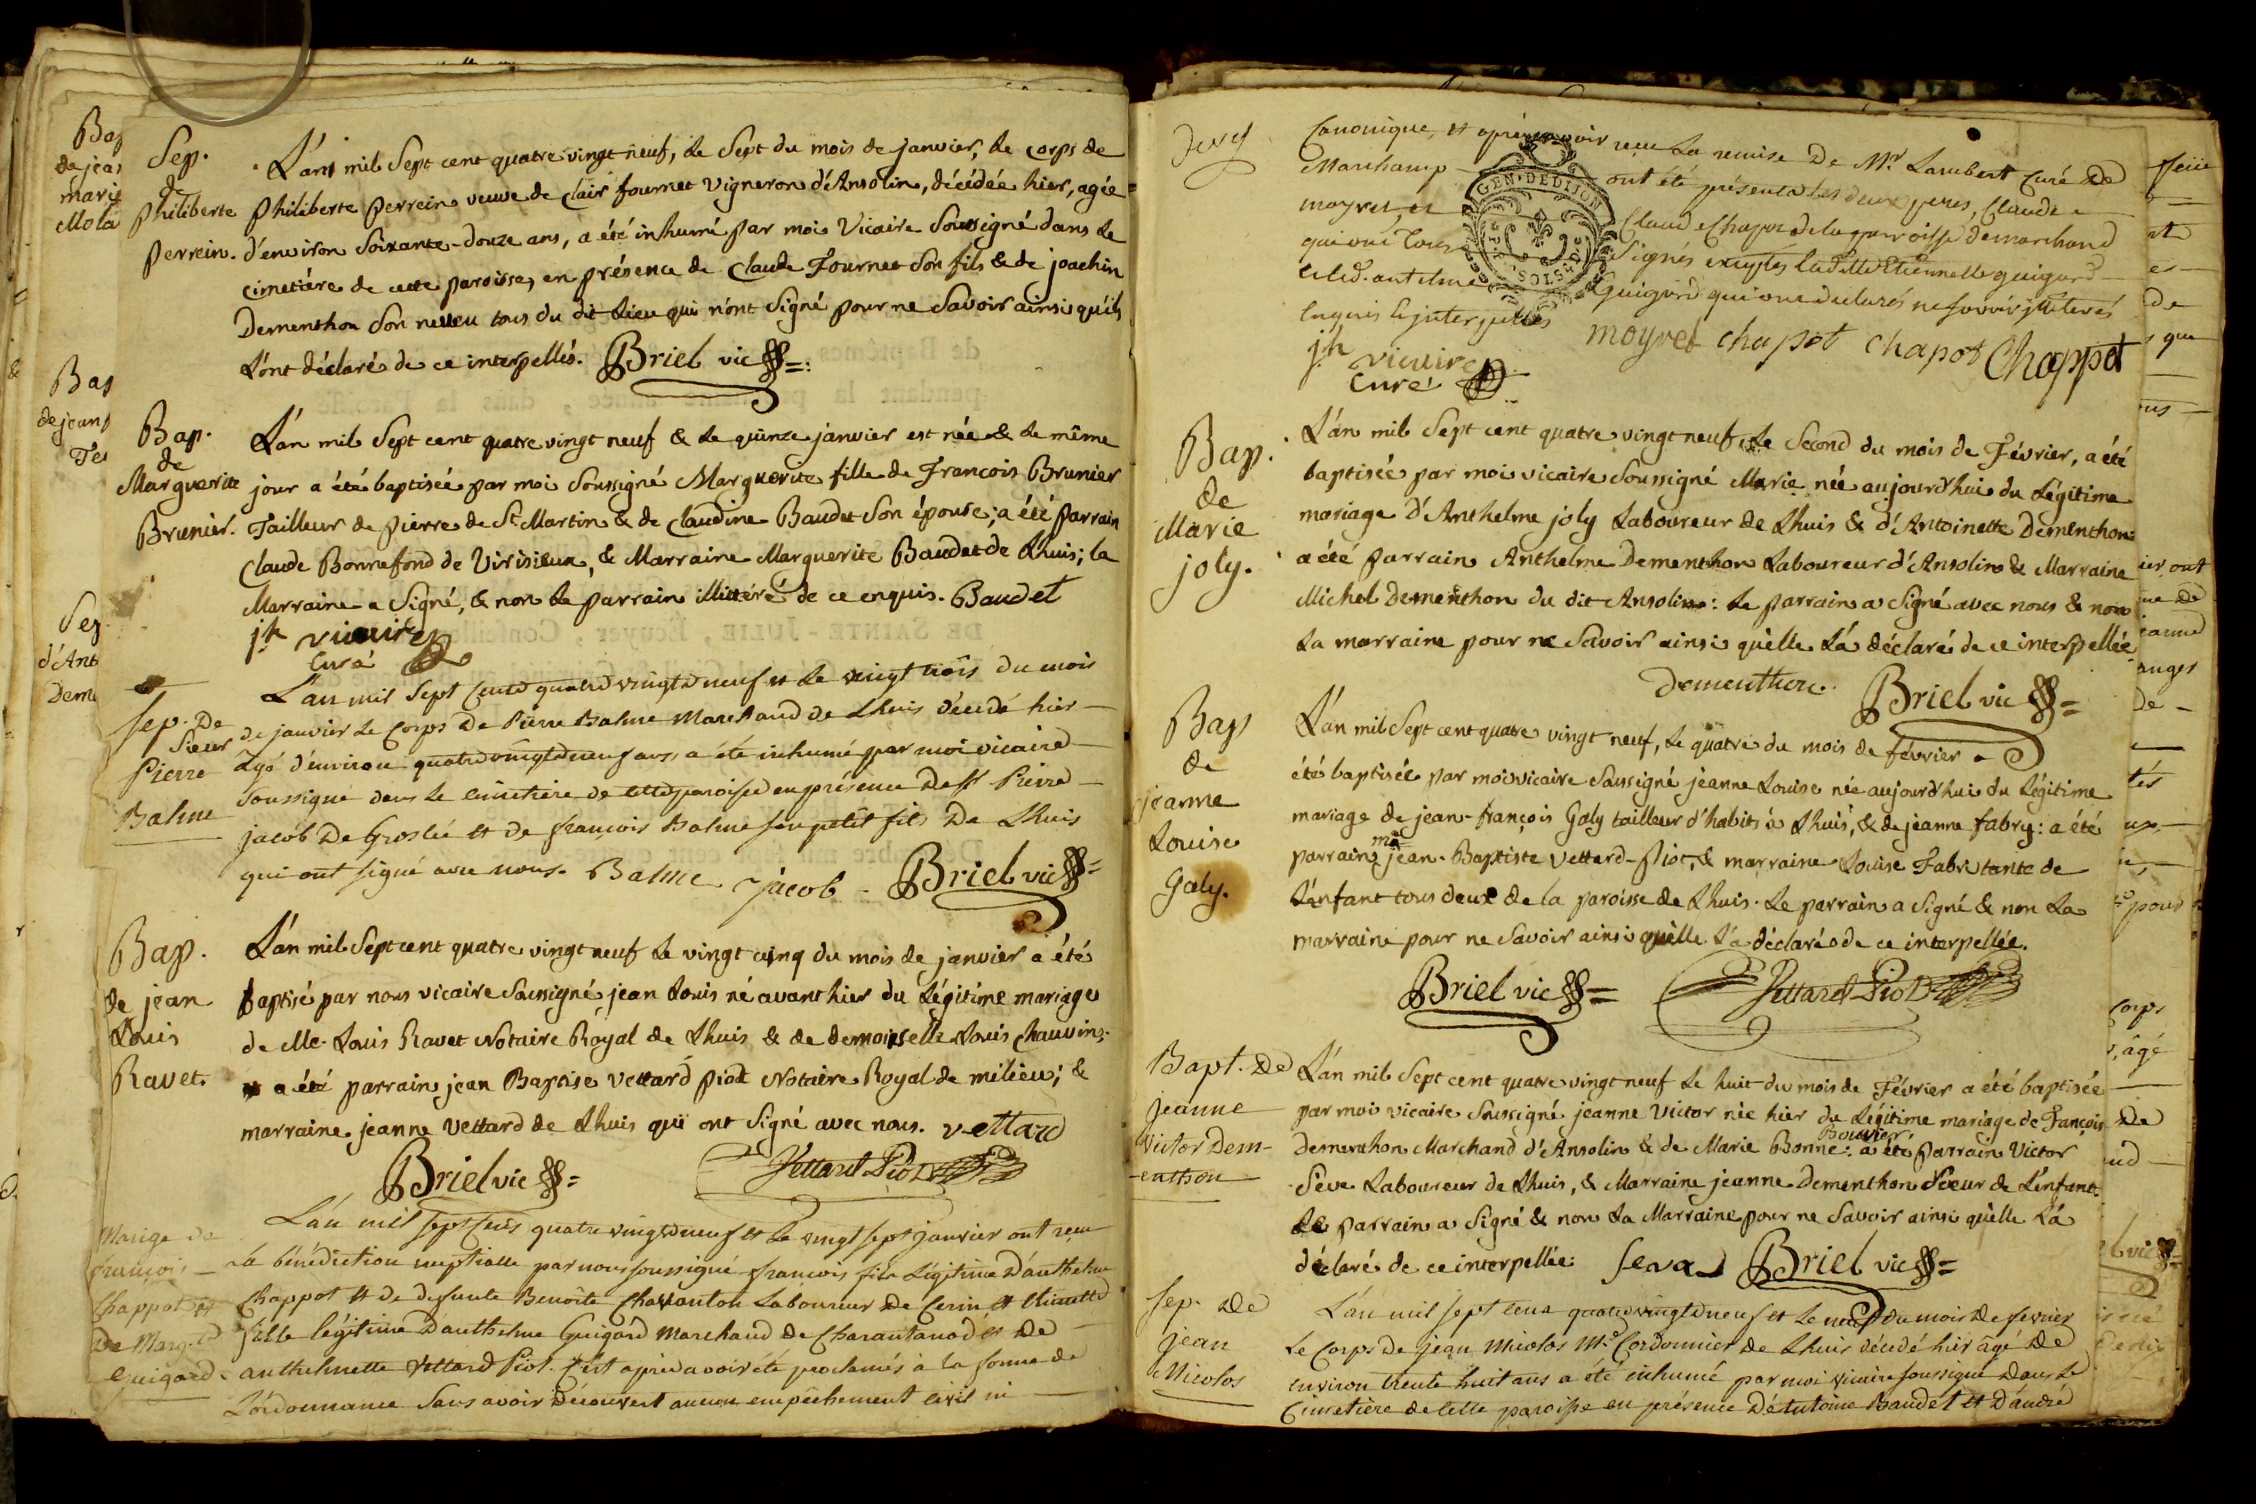 Sep.
de
Philiberte
Perrein.
L'an mil Sept cent quatre vingt neuf, Le Sept du mois de janvier, Le corps de
Philiberte Perrein veuve de Clair fournet Vigneron d'Ansolin, décédée hier, agée
d'environ Soixante-douze ans, a été inhumé par moi Vicaire Soussigné dans Le
cimetiére de cette paroisse, en présence de Claude Fournet Son fils & de joachin
Dementhon Son neveu tous du dit Lieu qui n'ont Signé pour ne Savoir ainsi qu'ils
L'ont déclaré de ce interpellés. Briel vic
Bap.
de
Marguerite
Brunier.
L'an mil Sept cent quatre vingt neuf & Le quinze janvier est née & Le même
jour a été baptisée par moi Soussigné Marguerite fille de François Brunier
Tailleur de pierre de St Martin & de Claudine Baudet Son épouse; a été Parrain
Claude Bonnefond de Virisieux, & Marraine Marguerite Baudet de Lhuis; la
Marraine a Signé, & non Le parrain illittéré de ce enquis. Baudet
jh vicaire
Curé
Sep. De
Sieur
Pierre
Balme
L'an mil Sept Cent quatre vingt neuf et Le vingt trois du mois
de janvier Le Corps De Pierre Balme Marchand de Lhuis décédé hier
agé d'environ quatre vingt neuf ans a été inhumé par moi vicaire
Soussigné dans Le cimetiére de cette paroisse en présence De Sr Pierre
jacob De Groslée et de francois Balme son petit fils De Lhuis
qui ont signé avec nous. Balme jacob Briel vic
Bap.
de jean
Louis
Ravet.
L'an mil Sept cent quatre vingt neuf Le vingt cinq du mois de janvier a été
baptisé par nous vicaire Soussigné jean Louis né avant hier du Légitime mariage
de Me. Louis Ravet Notaire Royal de Lhuis & de demoiselle Louis Chauvin;
a été parrain jean Baptise Vettard piot Notaire Royal de milieu; &
marraine jeanne Vettard de Lhuis qui ont Signé avec nous. vettard
Briel vic Vettard Piot
Mariage de
françois
Chappot et
De Marg.
Guigard
L'an mil sept cens quatre vingt neuf et Le vingt sept janvier ont reçu
La bénédiction nuptialle par nous soussigné francois fils Légitime D'anthelme
Chappot et de defunte Benoite Chavanton Laboureur De Cerin et
fille légitime D'anthelme Guigard Marchand de et De
anthelmette Vettard Piot. C'est apres avoir été proclamés à la forme de
L'ordonnance Sans avoir Découvert aucun empêchement civil ni
Canonique, et après avoir reçu La remise De Mr. Lambert Curé De
Marchamp ont été présents Les deux peres, Claude
moyret, et Claude Chapot de la paroisse de marchand
qui ont tous Signés exceptés
anthelme Guigard qui ont declarés ne savoir
Enquis & interpellés moyret chapot chapot Chappot
GEN. DE DIJON
jh vicaire
Curé
Bap.
de
Marie
joly.
L'an mil Sept cent quatre vingt neuf, Le Second du mois de Février, a été
baptisée par moi vicaire Soussigné Marie née aujourd'hui du Légitime
mariage d'Anthelme joly Laboureur de Lhuis & d'Antoinette Dementhon
a été Parrain Anthelme Dementhon Laboureur d'Ansolin & Marraine
Michel Dementhon du dit Ansolin: Le parrain a Signé avec nous & non
La marraine pour ne Savoir ainsi qu'elle L'a déclaré de ce interpellée
Dementhon. Briel vic
Bap
de
jeanne
Louise
Galy.
L'an mil Sept cent quatre vingt neuf, Le quatre du mois de février a
été baptisée par moi vicaire Soussigné jeanne Louise née aujourd'hui du Légitime
mariage de jean-françois Galy tailleur d'habits à Lhuis, & de jeanne fabry: a été
parrain me jean-Baptiste Vettard-Piot, & marraine Louise Fabri tante de
L'enfant tous deux de la paroisse de Lhuis. Le parrain a Signé & non La
marraine pour ne Savoir ainsi qu'elle L'a déclaré de ce interpellée.
Briel vic Vettard Piot
Bapt. De
jeanne
Victor Dem-
-enthon
L'an mil Sept cent quatre vingt neuf Le huit du mois de Février a été baptisée
par moi vicaire Soussigné jeanne Victor née hier du Légitime mariage de François
Dementhon Marchand d'Ansolin & de Marie Bonne Bouvier: a été parrain Victor
Séve Laboureur de Lhuis, & Marraine jeanne Dementhon Soeur de L'enfant.
Le parrain a Signé & non La Marraine pour ne Savoir ainsi qu'elle L'a
déclaré de ce interpellée: Seva Briel vic
Sep. De
jean
Micolos
L'an mil sept cent quatre vingt neuf et Le neuf du mois de fevrier
Le Corps de jean Micolos Me. Cordonnier de Lhuis décédé hier âgé De
environ trente huit ans a été inhumé par moi vicaire soussigné Dans Le
Cimetière de cette paroisse en présence D'Antoine Baudet et D'andré